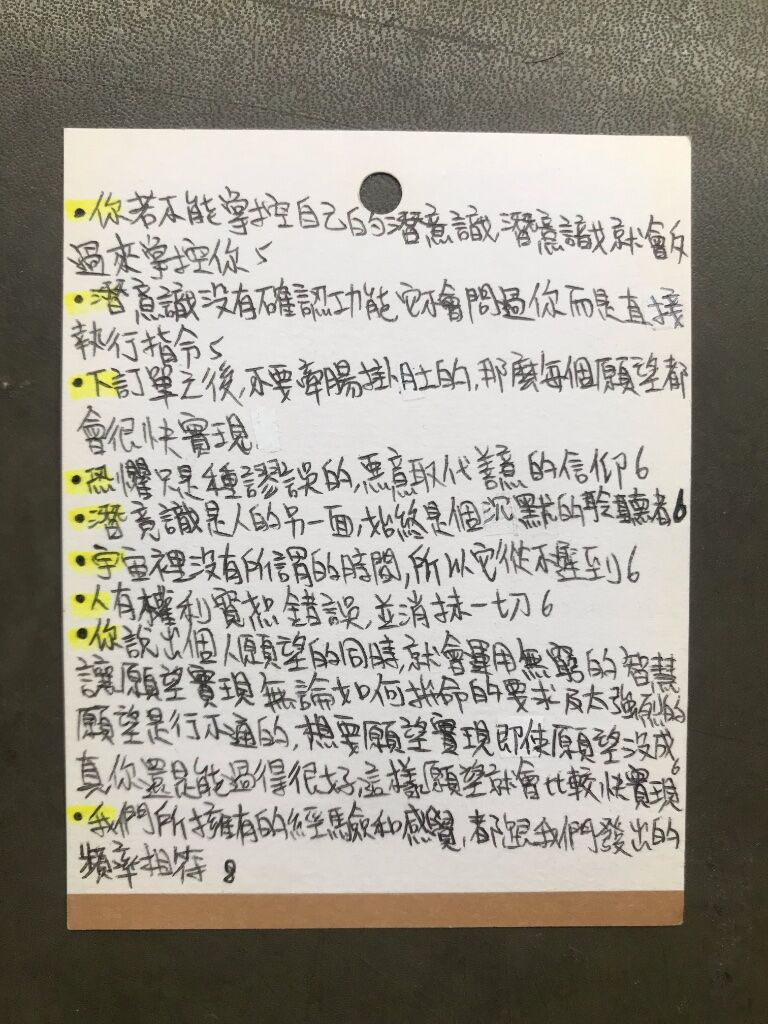 •你若不能掌控自己的潛意識,潛意識就會反
過來掌控你 5
•潛意識沒有確認功能,它不會問過你而是直接
執行指令 5
•下訂單之後,不要牽腸掛肚的,那麼每個願望都
會很快實現
•恐懼只是種謬誤的,惡意取代善意的信仰 6
•潛意識是人的另一面,始終是個沉默的聆聽者 6
•宇宙裡沒有所謂的時間,所以它從不遲到 6
•人有權利實況錯誤,並消抹一切 6
•你說出個人願望的同時,就會運用無窮的智慧
讓願望實現 無論如何拚命的要求及太強烈的
願望是行不通的,想要願望實現即使願望沒成
真你還是能過得很好,這樣願望就會比較快實現 6
•我們所擁有的經驗和感覺,都跟我們發出的
頻率相符 8